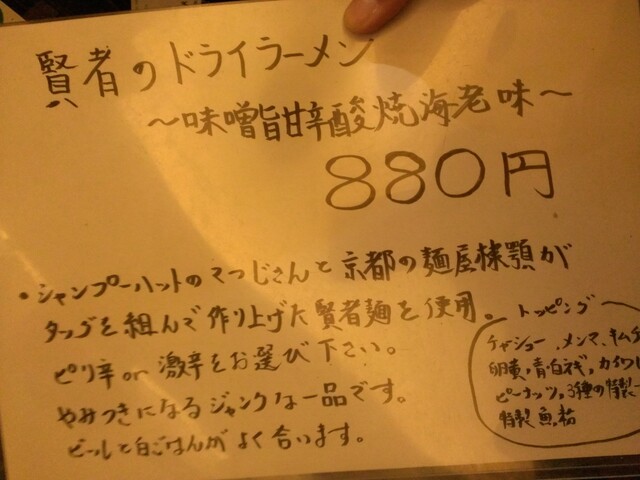 賢者のドライラーメン
～味噌旨甘辛酸焼海老味～
880円
・シャンプーハットのてつじさんと京都の麺屋棣鄂が
タッグを組んで作り上げた賢者麺を使用。
ピリ辛or激辛をお選び下さい。
やみつきになるジャンクな一品です。
ビールと白ごはんがよく合います。
トッピング
チャーシュー、メンマ、キムチ
卵黄、青・白ネギ、カイワレ
ピーナッツ、3種の特製
特製魚粉